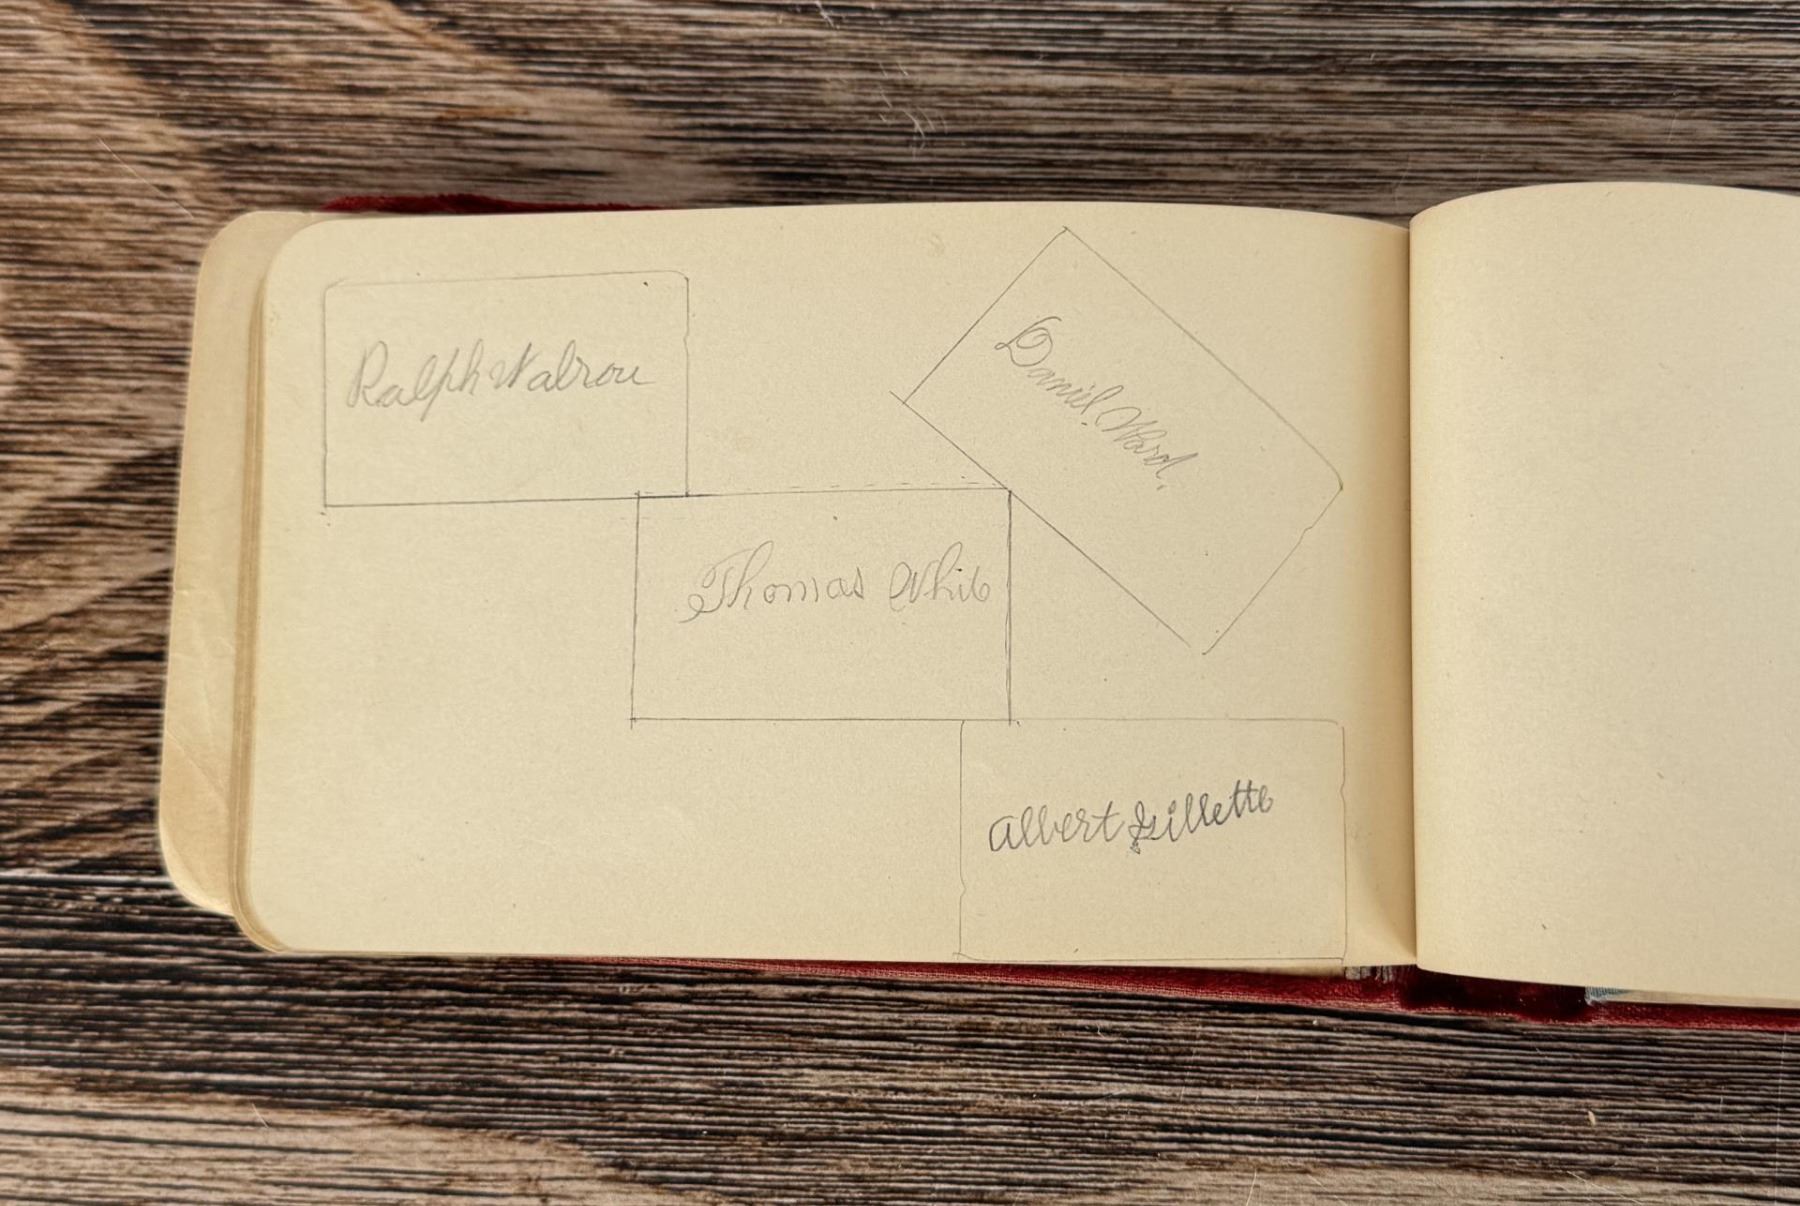 Ralph Walrou
Daniel Ward.
Thomas White
Albert Gillette